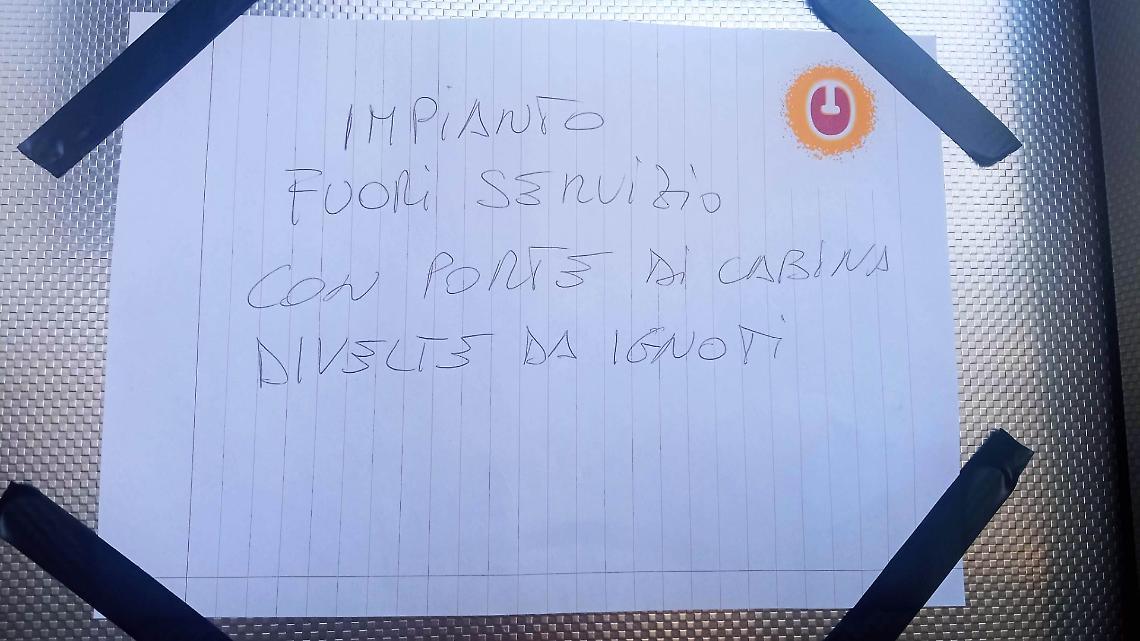 IMPIANTO
FUORI SERVIZIO
CON PORTE DI CABINA
DIVELTE DA IGNOTI